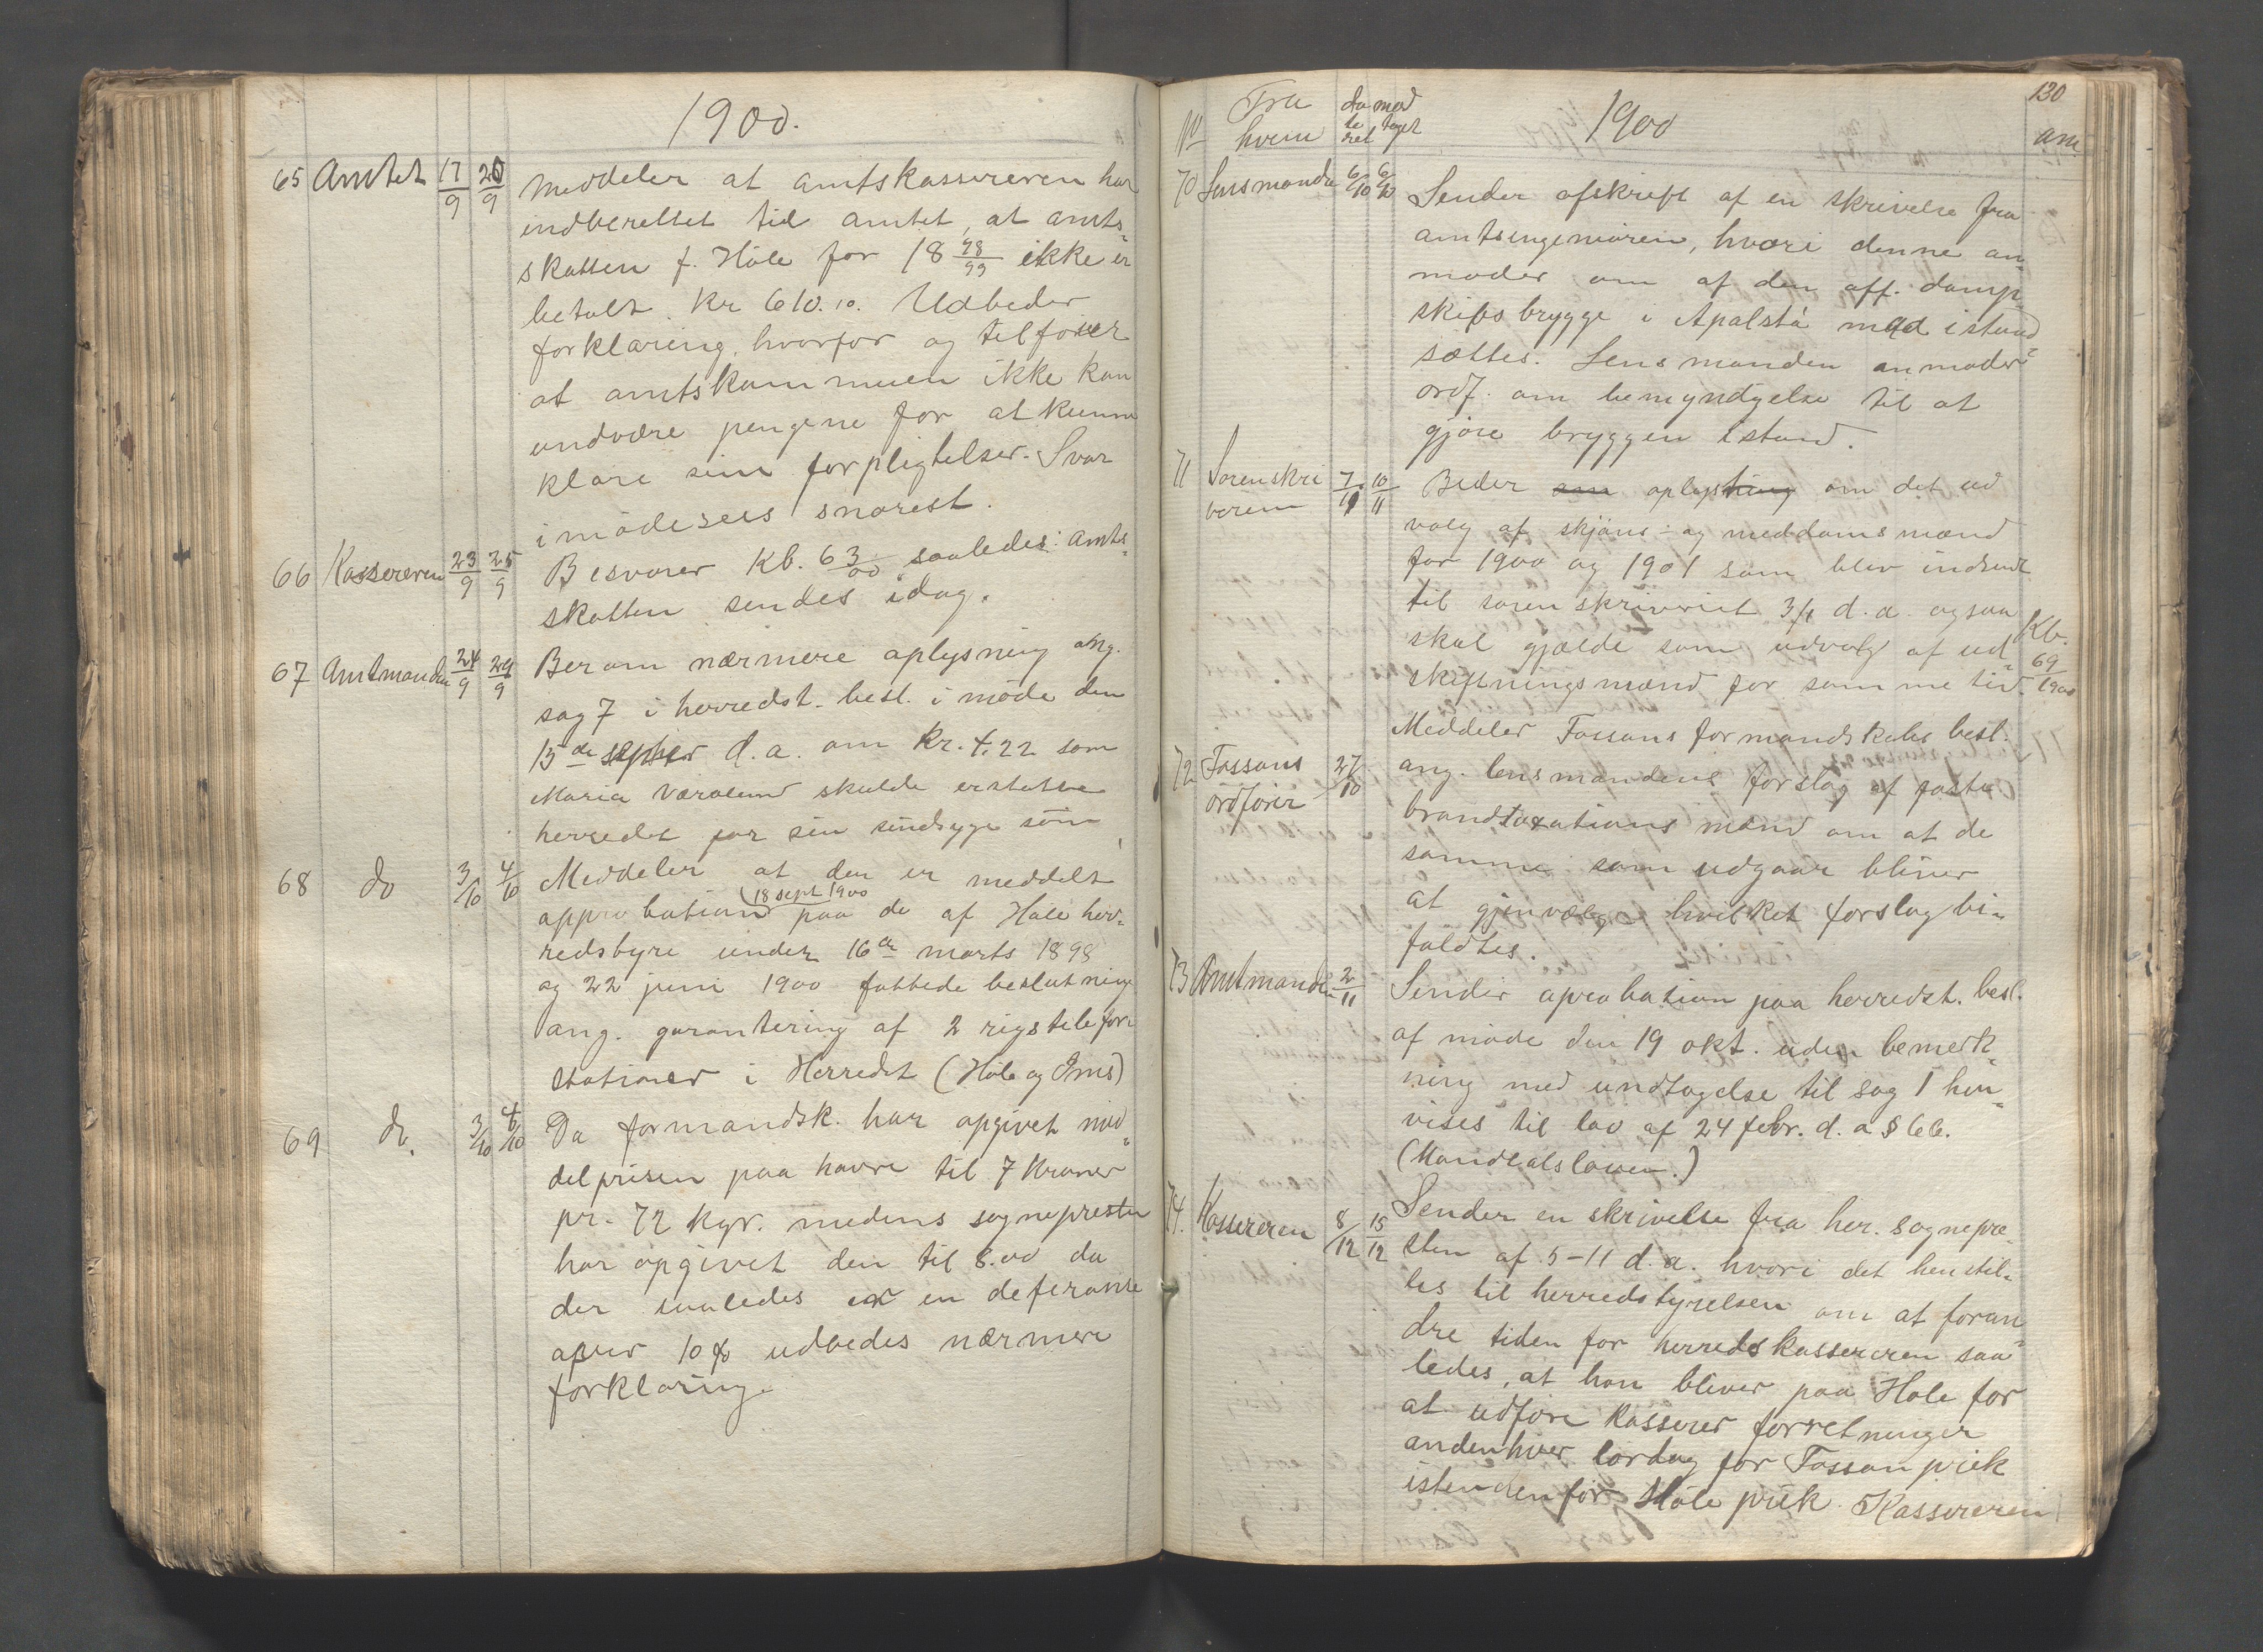 1900.
65 Amtet 17/9 20/9 Meddeler at amtskassereren har
indberettet til amtet, at amts-
skatten f. Høle for 18 98/99 ikke er
betalt. Kr 610.10. Udbeder
forklaring, hvorfor og tilføier
at amtskommunen ikke kan
undvære pengene for at kunne
klare sine forpligtelser. Svar
imødesees snarest.
66 Kassereren 23/9 25/9 Besvarer Kb. 63/00 saaledes: Amts-
skatten sendes idag.
67 Amtmanden 24/9 29/9 Ber om nærmere oplysning ang.
sag 7 i herredst. besl. i møde den
15de septber d.a. om kr. 4.22 som
Maria skulde erstatte
herredet for sin sindsyge søn
68 do 3/10 4/10 Meddeler at den er meddelt
(18 sept 1900
approbation paa de af Høle her-
redstyre under 16de marts 1898
og 22 juni 1900 fattede beslutninge
ang. garantering af 2 rigstelefon
stationer i Herredet (Høle og Ims)
69 do. 3/10 4/10 Da formandsk. har opgivet mid-
delprisen paa havre til 7 Kroner
pr. 72 kgr. medens sognepresten
har opgivet den til 8.00 da
der saaledes er en deferanse
over 10 % udbedes nærmere
forklaring.
130
No Fra hvem da te ret mod taget 1900 anm.
70 Lensmanden 6/10 6/10 Sender afskrift af en skrivelse fra
amtsingeniøren, hvori denne an-
moder om af den off. damp-
skibsbrygge i Apalstø maa istand-
sættes. Lensmanden anmoder
ordf. om bemyndigelse til at
gjøre bryggen istand.
71 Sorenskri
veren 7/11 10/11 Beder om oplysning om det ud
valg af skjøns- og meddomsmænd
for 1900 og 1901 som blev indsendt
til sorenskriveriet 3/1 d.a. ogsaa
skal gjælde som udvalg af ud-
skiftningsmænd for samme tid. Kb. 69/1900
Meddeler Fossans formandskabs besl.
72 Fossans
ordfører 27/10 ang. lensmandens forslag af faste
brandtaxationsmænd om at de
samme som udgaar bliver
at gjenvælge hvilket forslag bi-
faldtes.
73 Amtmanden 2/11 Sender aprobation paa herredst. besl.
af møde den 19 okt. uden bemærk-
ning med undtagelse til sag 1 hen-
vises til lov af 24 febr. d.a. § 66.
(Mandtalsloven.)
74. Kassereren 8/12 15/12 Sender en skrivelse fra her. sognepre-
sten af 5-11 d.a. hvori det henstil-
les til herredstyrelsen om at foran-
dre tiden for herredskassereren saa-
ledes, at han bliver paa Høle for
at udføre kasserer forretninger
andenhver lørdag for Fossan præk
istendenfor Høle præk. Kassereren